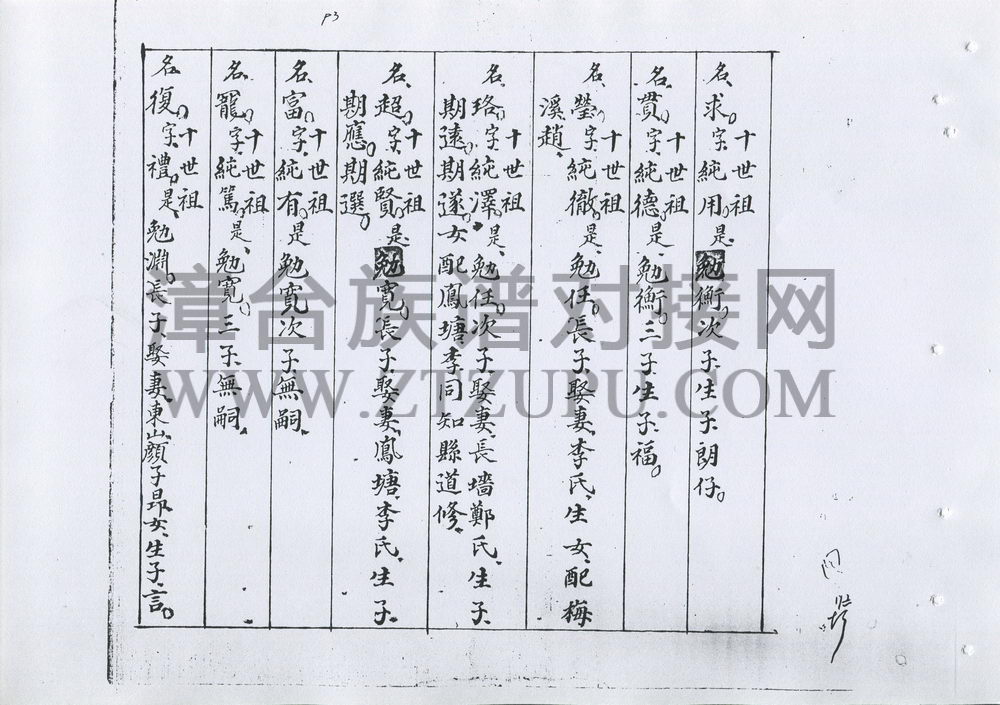 P3
十世祖
名求。字純用。是勉衡。次子、生子、朗仔。
十世祖
名貫。字純德。是、勉衡。三子生子福。
十世祖
名瑩。字純徹。是、勉任。長子娶妻、李氏、生女、配梅
溪趙、
十世祖
名珞。字純澤。是、勉任。次子娶妻、長墻鄭氏、生子
期遠。期遂。女配鳳塘李同知縣道修。
十世祖
名超。字純賢。是、勉寬。長子、娶妻、鳳塘、李氏、生子、
期應。期選。
十世祖
名富。字純有。是勉寬次子無嗣。
十世祖
名寵。字純篤。是、勉寬。三子、無嗣。
十世祖
名復。字禮。是、勉淵。長子、娶妻、東山顏子昂女、生子、言。
漳台族谱对接网
WWW.ZTZUPU.COM